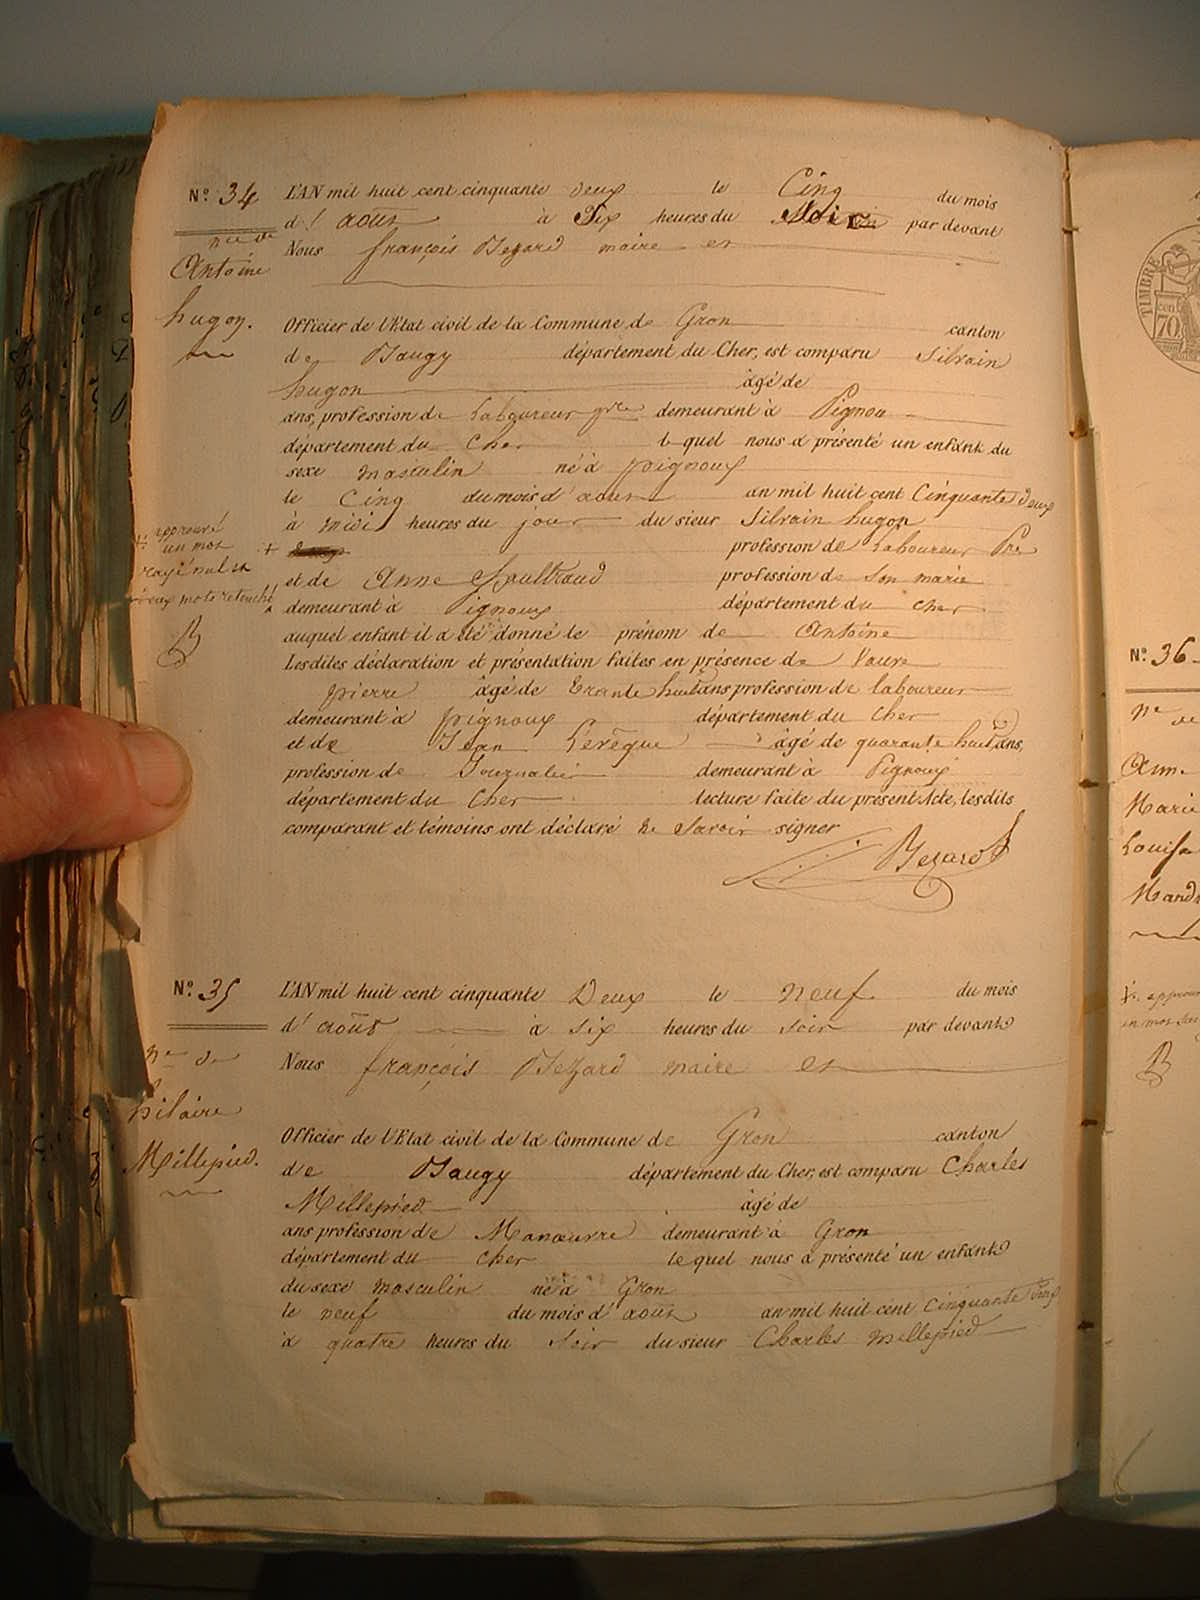 N.o 34 L'AN mil huit cent cinquante deux le Cinq du mois
d'août à Six heures du Soir par devant
Nous françois Bezard maire et
nce de
Antoine
hugon.
Officier de l'Etat civil de la Commune de Gron canton
de Baugy département du Cher, est comparu Silvain
hugon âgé de
ans, profession de Laboureur gre demeurant à Pignou
département du Cher lequel nous a présenté un enfant du
sexe masculin né à pignoux
le Cinq du mois d'aout an mil huit cent Cinquante deux
à midi heures du jour du sieur Silvain hugon
+ profession de Laboureur
et de Anne profession de son marie
demeurant à Pignoux département du cher
+ approuvé
un mot
rayé nul et
deux mots retouché
B
auquel enfant il a été donné le prénom de Antoine
Lesdites déclaration et présentation faites en présence de Vaure
pierre âgé de trente huit ans profession de laboureur
demeurant à pignoux département du Cher
et de Jean Levêque âgé de quarante huit ans,
profession de Journalier demeurant à Pignoux
département du Cher lecture faite du présent Acte, lesdits
comparant et témoins ont déclaré ne Savoir signer
Bezard
N.o 35 L'AN mil huit cent cinquante Deux le neuf du mois
d'août à six heures du soir par devant
Nous françois Bezard maire et
nce de
hilaire
Millepied.
Officier de l'Etat civil de la Commune de Gron canton
de Baugy département du Cher, est comparu Charles
Millepied âgé de
ans profession de Manœuvre demeurant à Gron
département du cher lequel nous a présenté un enfant
du sexe masculin né à Gron
le neuf du mois d'aout an mil huit cent cinquante deux
à quatre heures du soir du sieur Charles millepied
TIMBRE
70
N.o 36
ne de
Marie
Louise
B